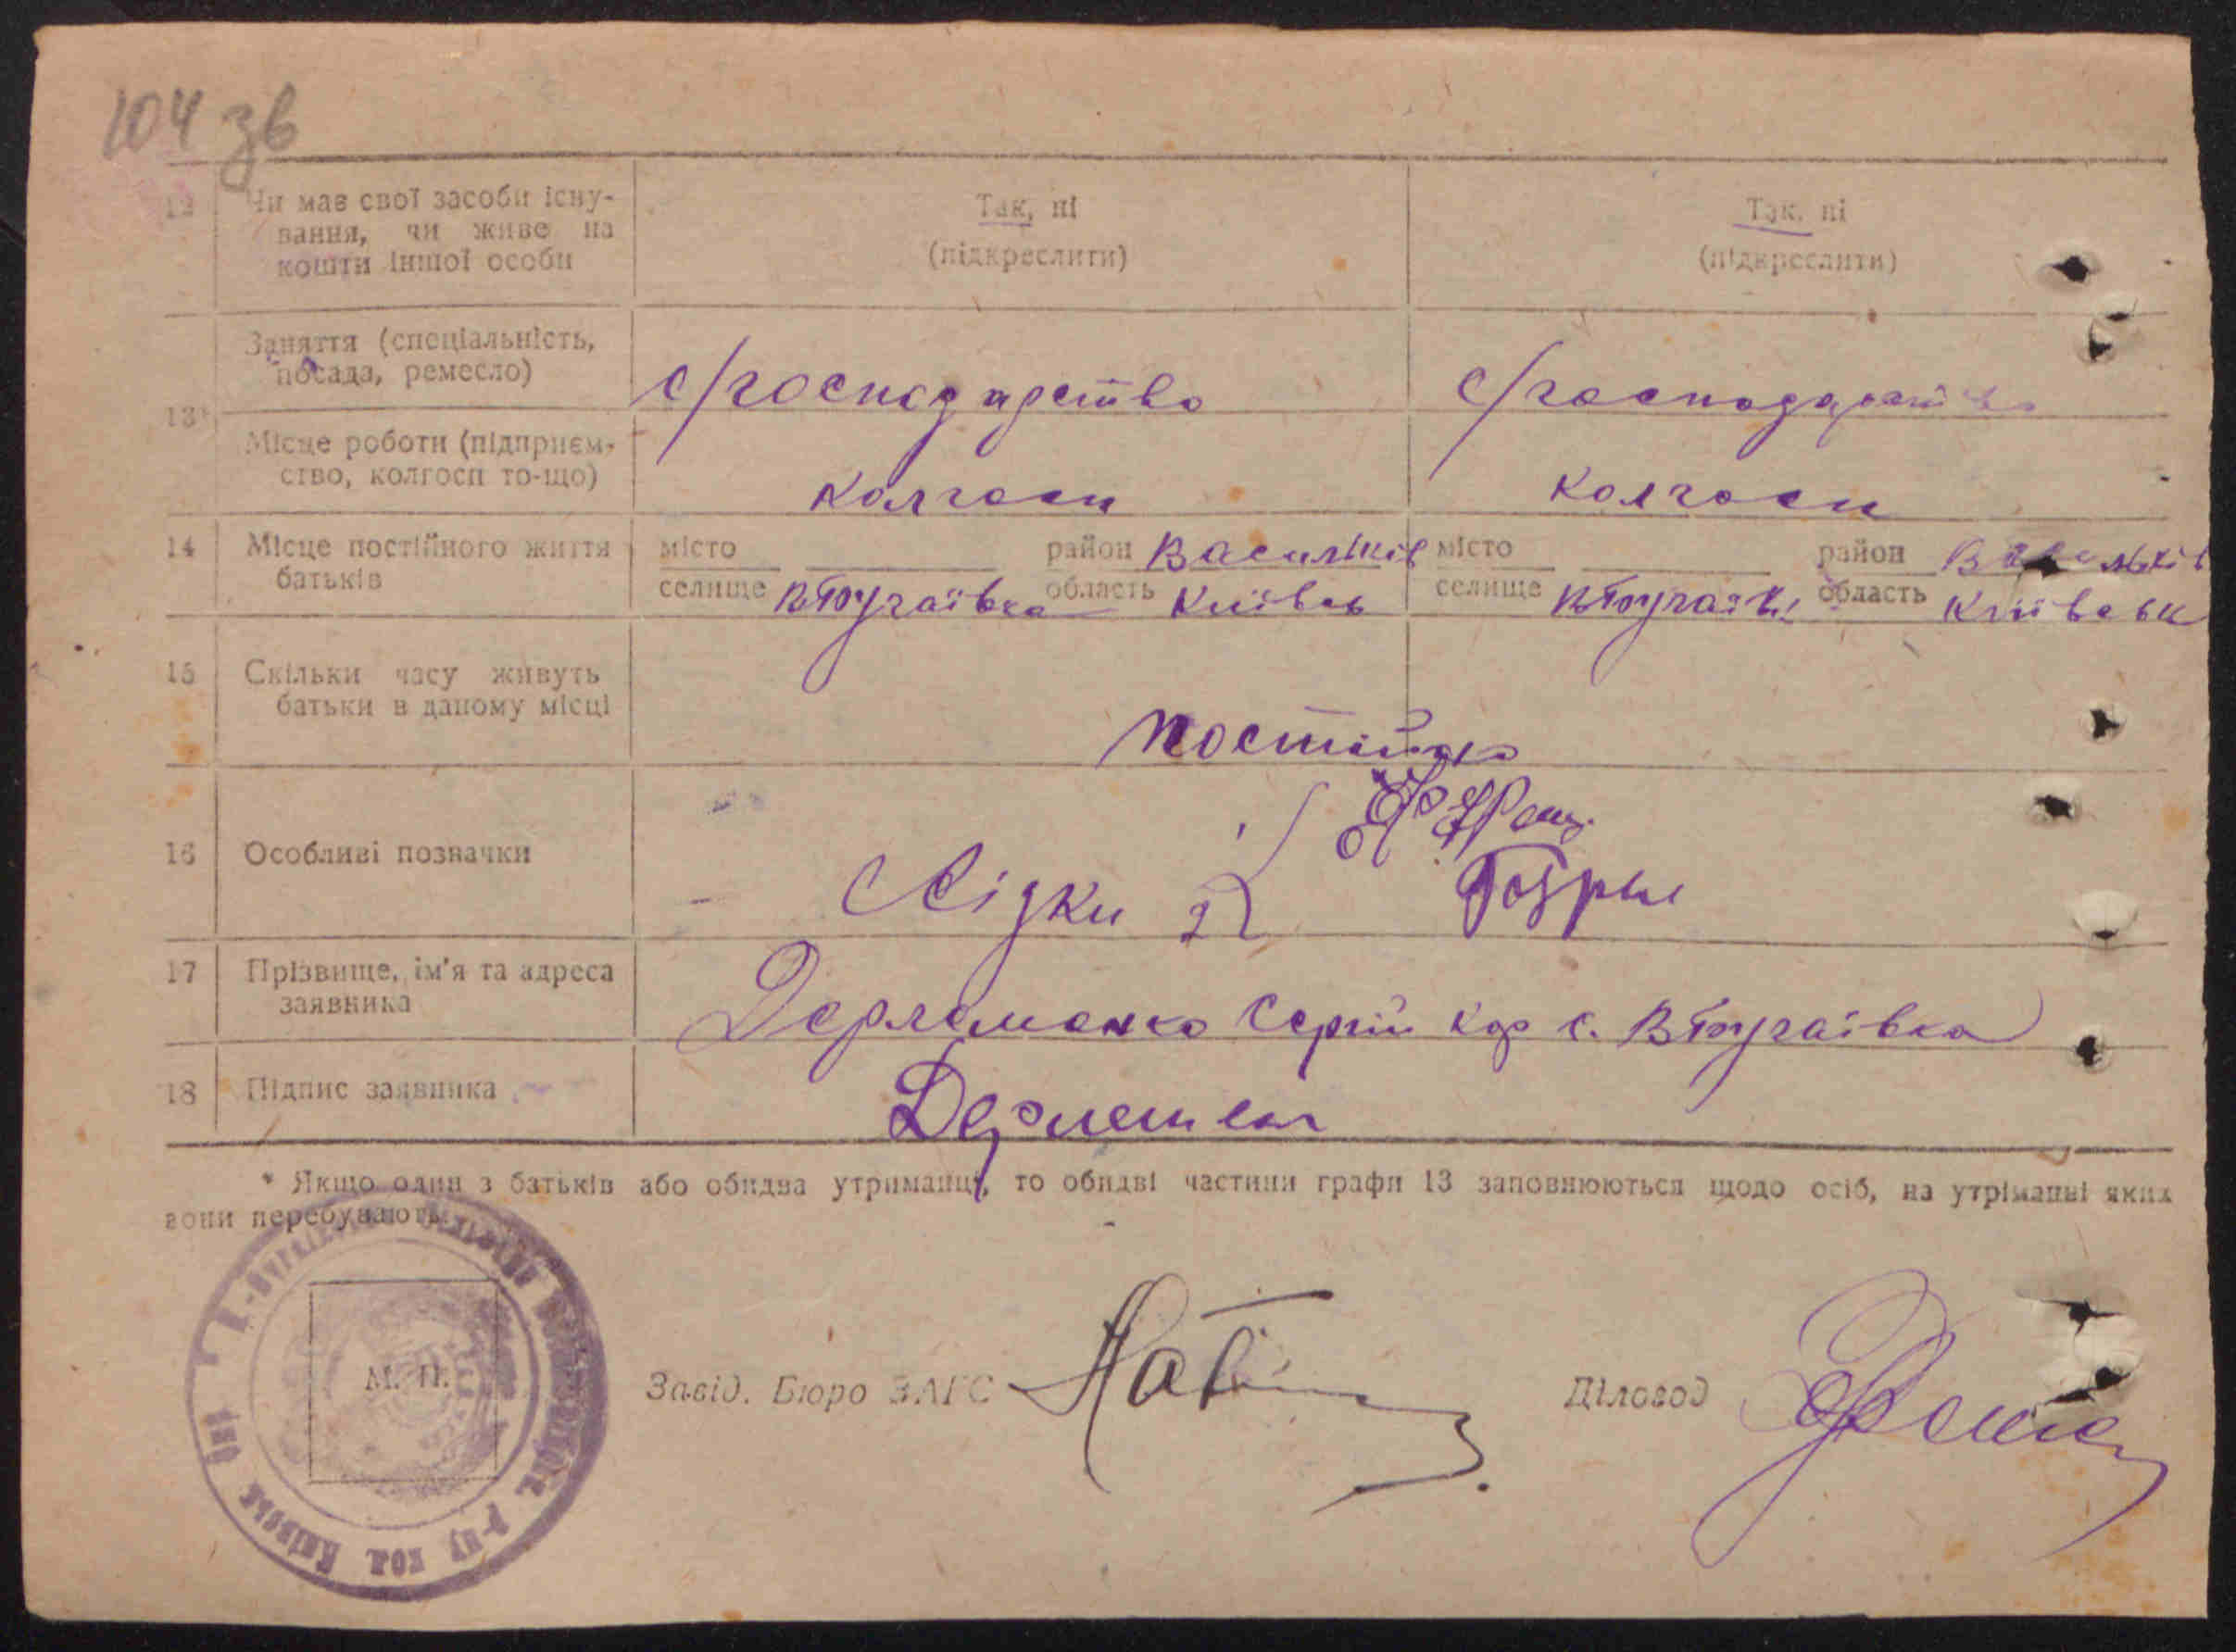 104 зв
12 Чи має свої засоби існу-
вання, чи живе на
кошти іншої особи
Так, ні
(підкреслити)
Так, ні
(підкреслити)
13* Заняття (спеціальність,
посада, ремесло)
с/господарство
с/господарство
Місце роботи (підприєм-
ство, колгосп то-що)
колгосп
колгосп
14 Місце постійного життя
батьків
місто район Васильків
селище область Київськ
місто район Васильків
селище область Київськ
15 Скільки часу живуть
батьки в даному місці
постійно
16 Особливі позначки
Свідки 2
17 Прізвище, ім'я та адреса
заявника
Сергій с.
18 Підпис заявника
* Якщо один з батьків або обидва утриманці, то обидві частини графи 13 заповнюються щодо осіб, на утріманні яких
вони перебувають.
М. П.
Завід. Бюро ЗАГС
Діловод
р-ну КОЛ Київськ